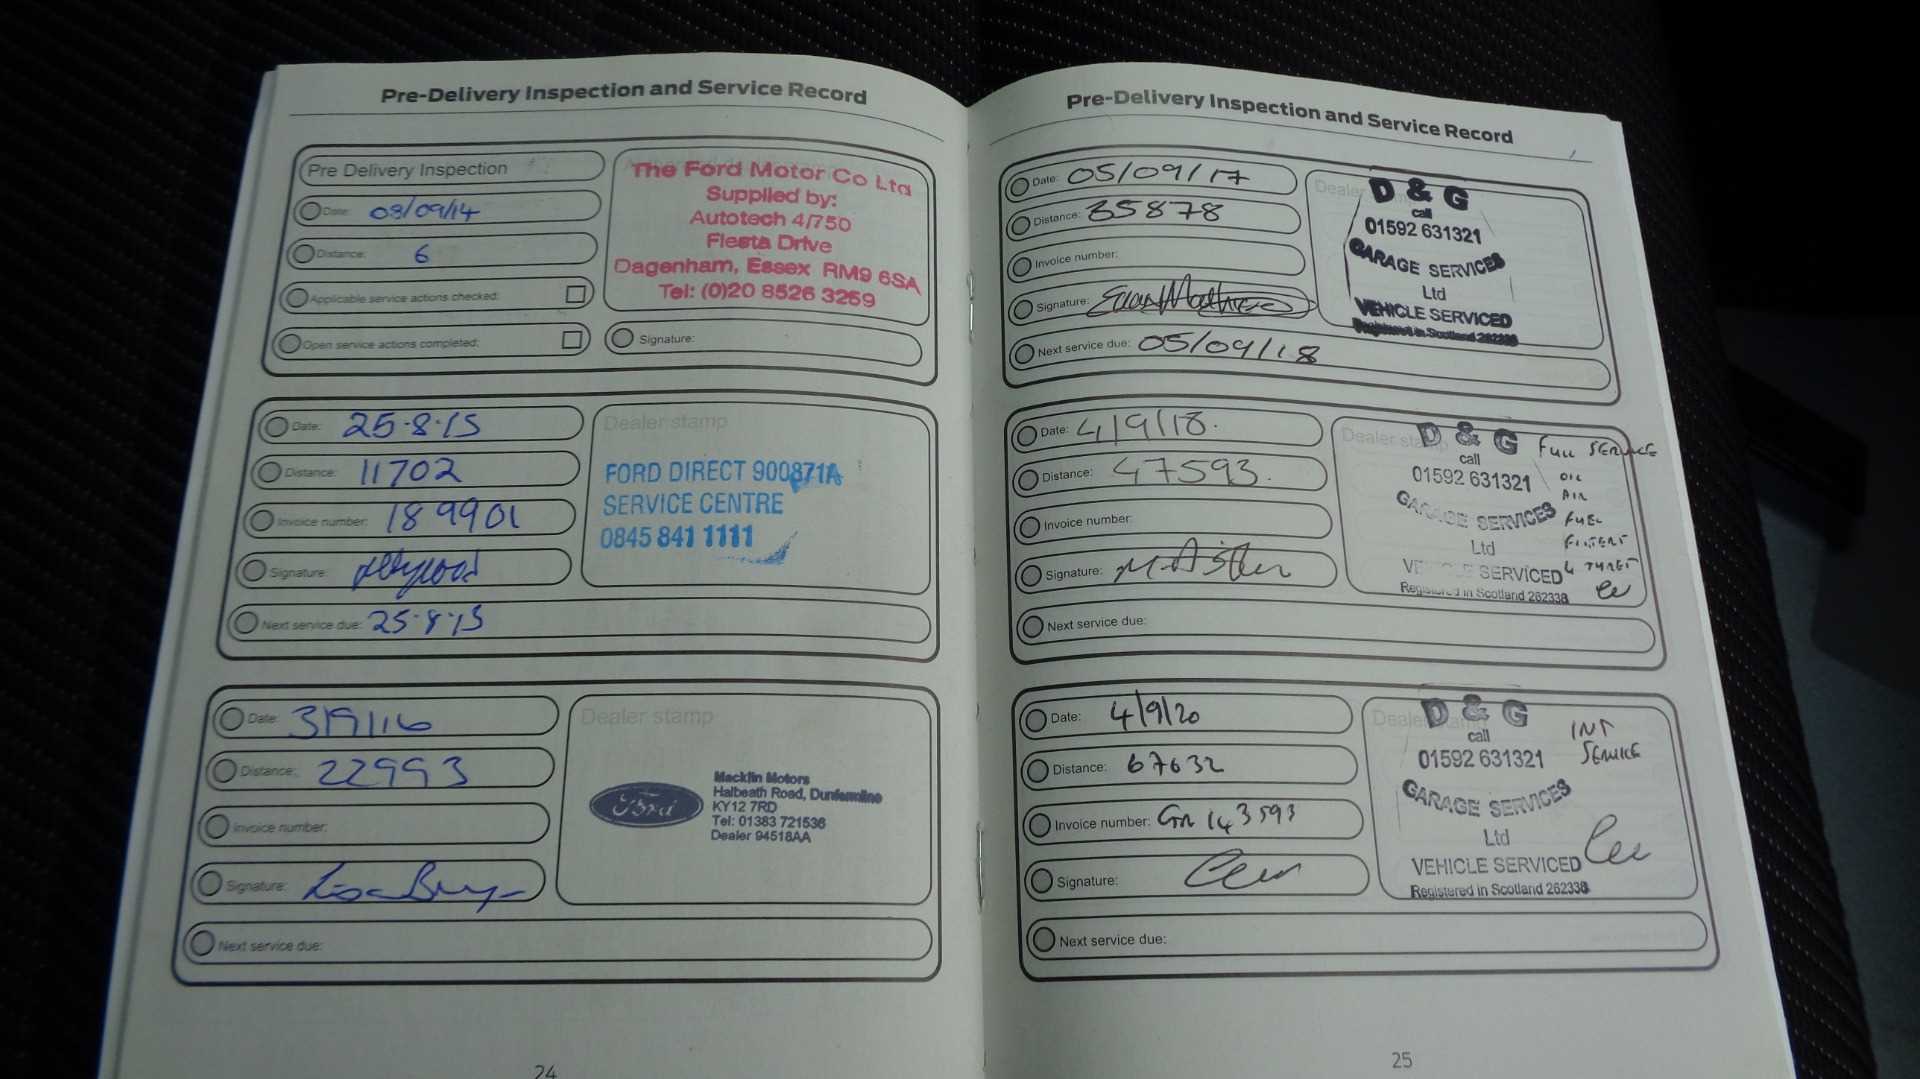 Pre-Delivery Inspection and Service Record
Pre Delivery Inspection
Date: 03/09/14
Distance: 6
Applicable service actions checked:
Open service actions completed:
The Ford Motor Co Ltd
Supplied by:
Autotech 4/750
Fiesta Drive
Dagenham, Essex RM9 6SA
Tel: (0)20 8526 3259
Signature:
Date: 25·8·15
Distance: 11702
Invoice number: 189901
Signature:
Next service due: 25·8·15
Dealer stamp
FORD DIRECT 900871A
SERVICE CENTRE
0845 841 1111
Date: 3/9/16
Distance: 22993
Invoice number:
Signature:
Next service due:
Dealer stamp
Ford
Macklin Motors
Halbeath Road, Dunfermline
KY12 7RD
Tel: 01383 721536
Dealer 94518AA
24
Pre-Delivery Inspection and Service Record
Date: 05/09/17
Distance: 35878
Invoice number:
Signature:
Next service due: 05/09/18
Dealer
D & G
call
01592 631321
GARAGE SERVICES
Ltd
VEHICLE SERVICED
Registered in Scotland 262338
Date: 4/9/18.
Distance: 47593.
Invoice number:
Signature:
Next service due:
Dealer stamp
D & G
call
01592 631321
GARAGE SERVICES
Ltd
VEHICLE SERVICED
Registered in Scotland 262338
FULL SERVICE
OIL
AIR
FUEL
FILTERS
4 TYRES
Date: 4/9/20
Distance: 67632
Invoice number: GR 143593
Signature:
Next service due:
Dealer stamp
D & G
call
01592 631321
GARAGE SERVICES
Ltd
VEHICLE SERVICED
Registered in Scotland 262338
INT
SERVICE
25